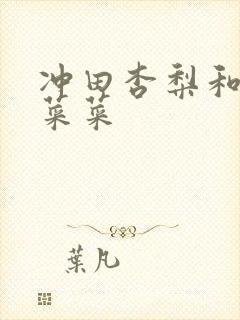 冲田杏梨和
菜菜
葉凡